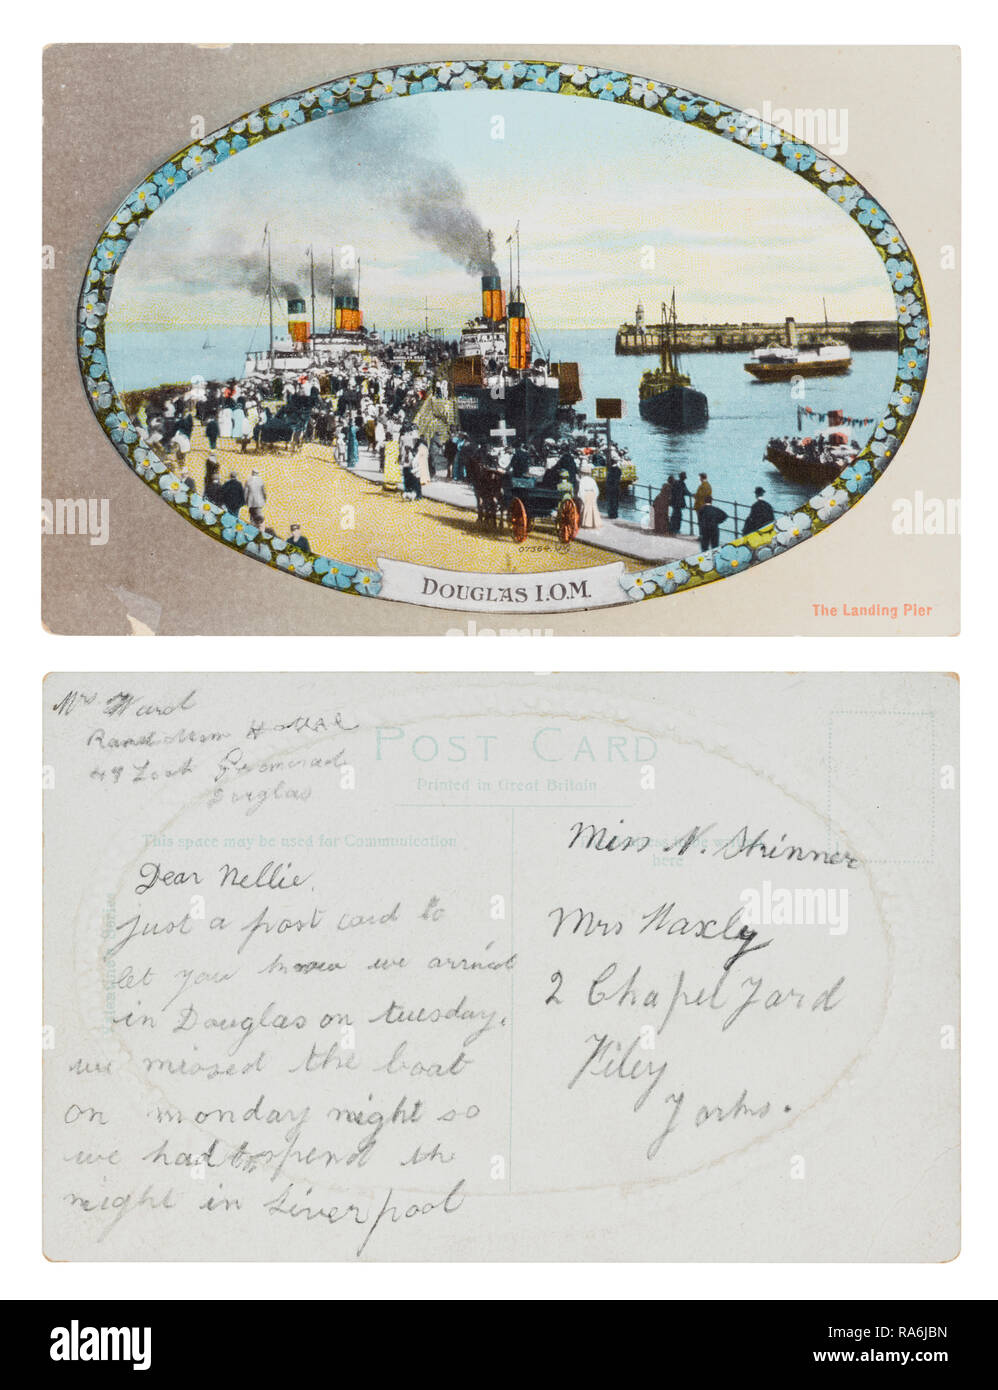 DOUGLAS I.O.M.
07364. JV
The Landing Pier
Mrs Ward
48 Loch Promenade
Douglas
POST CARD
Printed in Great Britain
This space may be used for Communication
here
Dear Nellie.
just a post card to
let you know we arrived
in Douglas on tuesday.
we missed the boat
on monday night so
we had to spend the
night in Liverpool
Miss N. Skinner
Mrs Haxby
2 Chapel Yard
Filey
Yorks.
alamy
alamy stock photo
RA6JBN
www.alamy.com